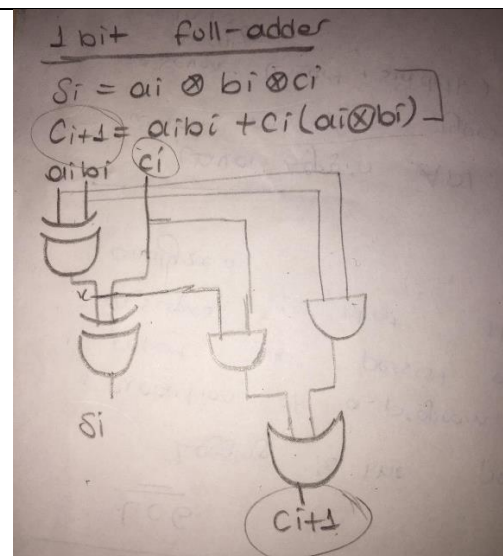 1 bit full-adder
Si = ai ⊗ bi ⊗ ci
Ci+1 = aibi + ci(ai⊗bi)
ai bi ci
x
Si
Ci+1